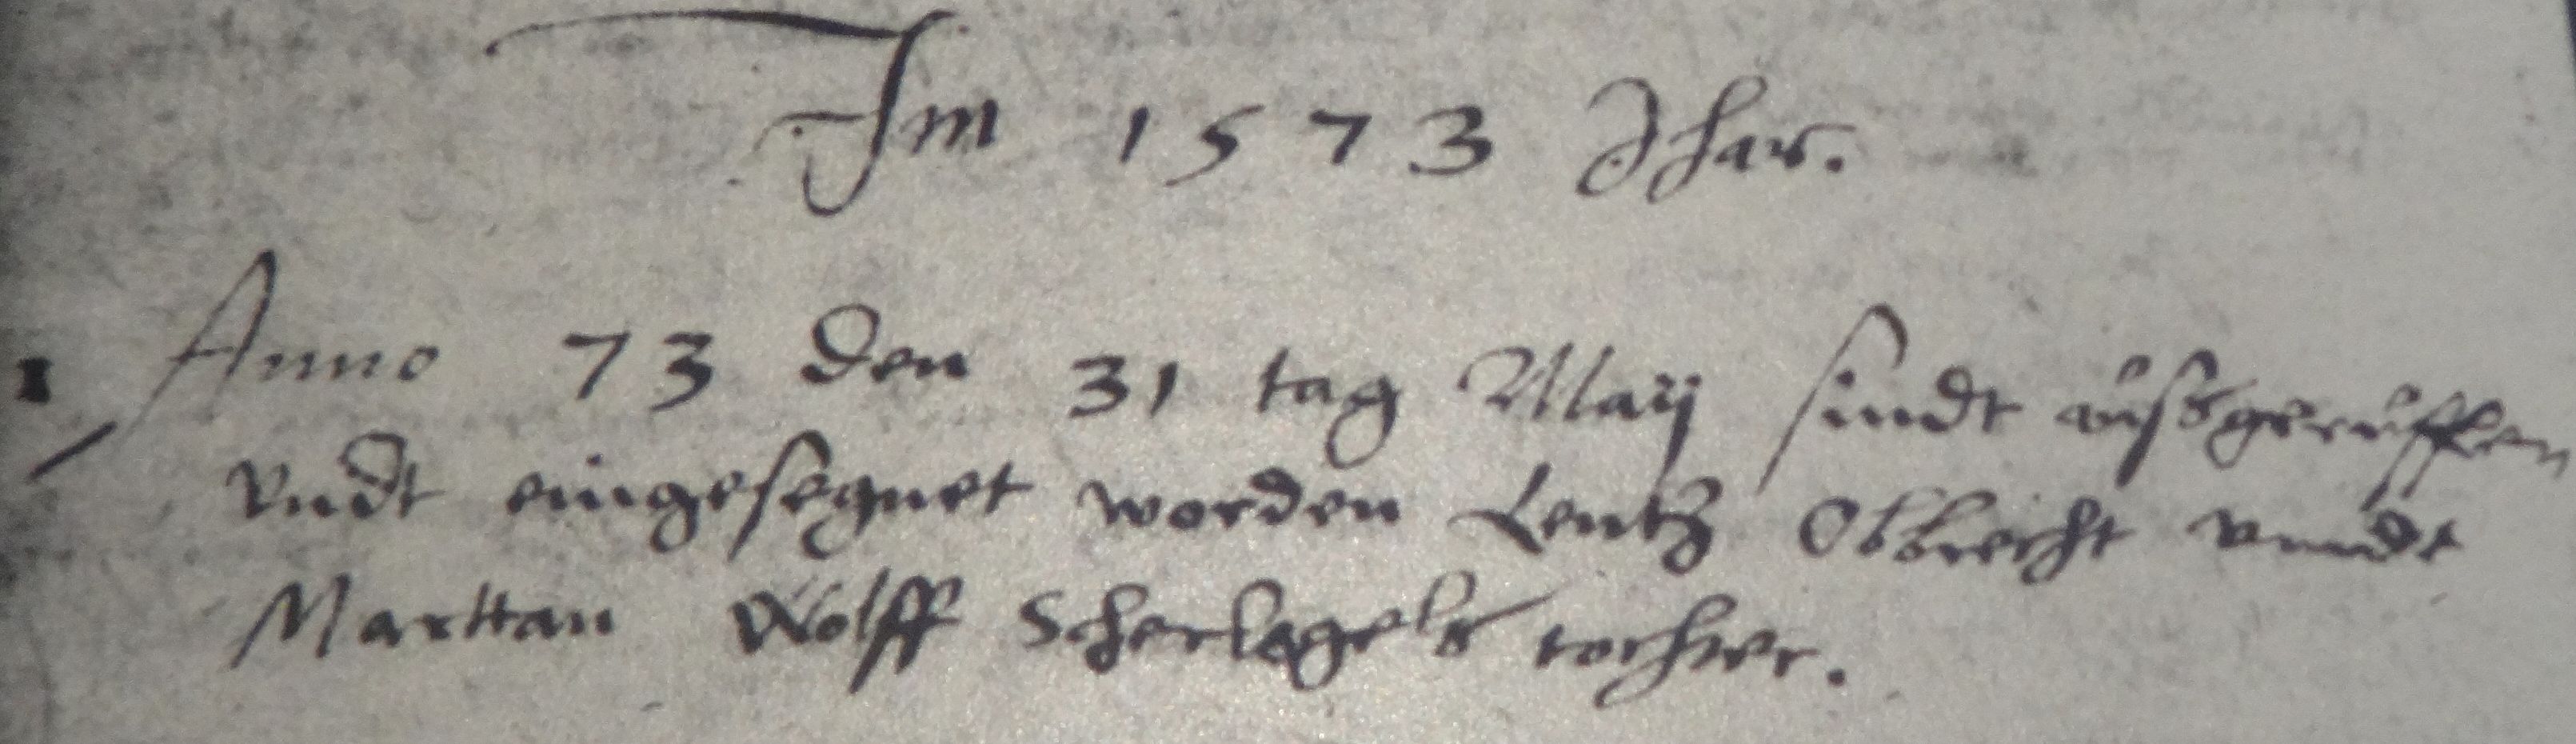 Im 1573 Jhar.
1 Anno 73 den 31 tag Maij sindt ußgeruffen
vndt eingesegnet worden Lentz Obbrecht vnndt
Marttan Wolff Scherlagels tochter.